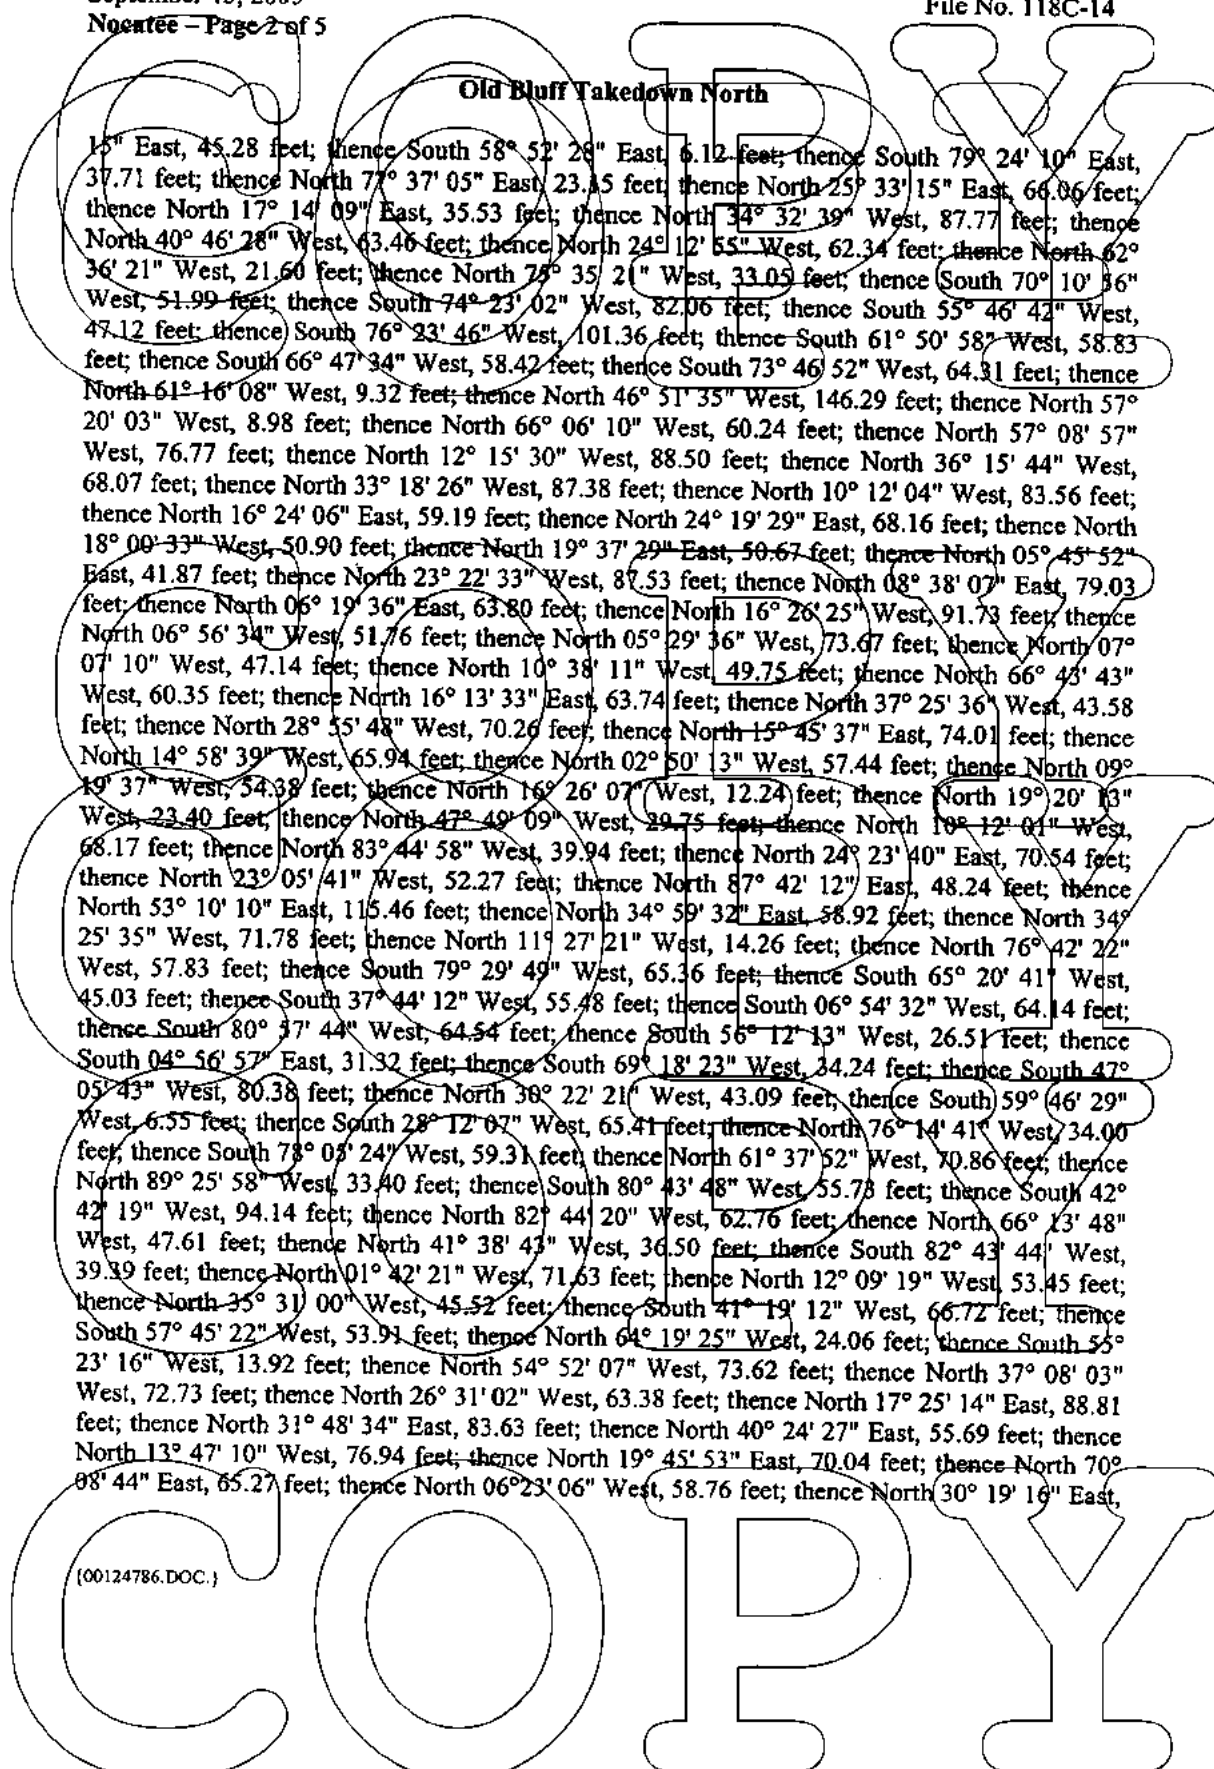 File No. 118C-14
Nocatee – Page 2 of 5
Old Bluff Takedown North
15" East, 45.28 feet; thence South 58° 52' 28" East, 6.12 feet; thence South 79° 24' 10" East,
37.71 feet; thence North 77° 37' 05" East, 23.15 feet; thence North 25° 33' 15" East, 66.06 feet;
thence North 17° 14' 09" East, 35.53 feet; thence North 34° 32' 39" West, 87.77 feet; thence
North 40° 46' 28" West, 63.46 feet; thence North 24° 12' 55" West, 62.34 feet; thence North 62°
36' 21" West, 21.60 feet; thence North 75° 35' 21" West, 33.05 feet; thence South 70° 10' 36"
West, 51.99 feet; thence South 74° 23' 02" West, 82.06 feet; thence South 55° 46' 42" West,
47.12 feet; thence South 76° 23' 46" West, 101.36 feet; thence South 61° 50' 58" West, 58.83
feet; thence South 66° 47' 34" West, 58.42 feet; thence South 73° 46' 52" West, 64.31 feet; thence
North 61° 16' 08" West, 9.32 feet; thence North 46° 51' 35" West, 146.29 feet; thence North 57°
20' 03" West, 8.98 feet; thence North 66° 06' 10" West, 60.24 feet; thence North 57° 08' 57"
West, 76.77 feet; thence North 12° 15' 30" West, 88.50 feet; thence North 36° 15' 44" West,
68.07 feet; thence North 33° 18' 26" West, 87.38 feet; thence North 10° 12' 04" West, 83.56 feet;
thence North 16° 24' 06" East, 59.19 feet; thence North 24° 19' 29" East, 68.16 feet; thence North
18° 00' 33" West, 50.90 feet; thence North 19° 37' 29" East, 50.67 feet; thence North 05° 45' 52"
East, 41.87 feet; thence North 23° 22' 33" West, 87.53 feet; thence North 08° 38' 07" East, 79.03
feet; thence North 06° 19' 36" East, 63.80 feet; thence North 16° 26' 25" West, 91.73 feet; thence
North 06° 56' 34" West, 51.76 feet; thence North 05° 29' 36" West, 73.67 feet; thence North 07°
07' 10" West, 47.14 feet; thence North 10° 38' 11" West, 49.75 feet; thence North 66° 43' 43"
West, 60.35 feet; thence North 16° 13' 33" East, 63.74 feet; thence North 37° 25' 36" West, 43.58
feet; thence North 28° 55' 48" West, 70.26 feet; thence North 15° 45' 37" East, 74.01 feet; thence
North 14° 58' 39" West, 65.94 feet; thence North 02° 50' 13" West, 57.44 feet; thence North 09°
19' 37" West, 54.38 feet; thence North 16° 26' 07" West, 12.24 feet; thence North 19° 20' 13"
West, 23.40 feet; thence North 47° 49' 09" West, 29.75 feet; thence North 10° 12' 01" West,
68.17 feet; thence North 83° 44' 58" West, 39.94 feet; thence North 24° 23' 40" East, 70.54 feet;
thence North 23° 05' 41" West, 52.27 feet; thence North 87° 42' 12" East, 48.24 feet; thence
North 53° 10' 10" East, 115.46 feet; thence North 34° 59' 32" East, 58.92 feet; thence North 34°
25' 35" West, 71.78 feet; thence North 11° 27' 21" West, 14.26 feet; thence North 76° 42' 22"
West, 57.83 feet; thence South 79° 29' 49" West, 65.36 feet; thence South 65° 20' 41" West,
45.03 feet; thence South 37° 44' 12" West, 55.48 feet; thence South 06° 54' 32" West, 64.14 feet;
thence South 80° 37' 44" West, 64.54 feet; thence South 56° 12' 13" West, 26.51 feet; thence
South 04° 56' 57" East, 31.32 feet; thence South 69° 18' 23" West, 34.24 feet; thence South 47°
05' 43" West, 80.38 feet; thence North 30° 22' 21" West, 43.09 feet; thence South 59° 46' 29"
West, 6.55 feet; thence South 28° 12' 07" West, 65.41 feet; thence North 76° 14' 41" West, 34.00
feet; thence South 78° 03' 24" West, 59.31 feet; thence North 61° 37' 52" West, 70.86 feet; thence
North 89° 25' 58" West, 33.40 feet; thence South 80° 43' 48" West, 55.73 feet; thence South 42°
42' 19" West, 94.14 feet; thence North 82° 44' 20" West, 62.76 feet; thence North 66° 13' 48"
West, 47.61 feet; thence North 41° 38' 43" West, 36.50 feet; thence South 82° 43' 44" West,
39.39 feet; thence North 01° 42' 21" West, 71.63 feet; thence North 12° 09' 19" West, 53.45 feet;
thence North 35° 31' 00" West, 45.52 feet; thence South 41° 19' 12" West, 66.72 feet; thence
South 57° 45' 22" West, 53.91 feet; thence North 64° 19' 25" West, 24.06 feet; thence South 55°
23' 16" West, 13.92 feet; thence North 54° 52' 07" West, 73.62 feet; thence North 37° 08' 03"
West, 72.73 feet; thence North 26° 31' 02" West, 63.38 feet; thence North 17° 25' 14" East, 88.81
feet; thence North 31° 48' 34" East, 83.63 feet; thence North 40° 24' 27" East, 55.69 feet; thence
North 13° 47' 10" West, 76.94 feet; thence North 19° 45' 53" East, 70.04 feet; thence North 70°
08' 44" East, 65.27 feet; thence North 06°23' 06" West, 58.76 feet; thence North 30° 19' 16" East,
{00124786.DOC.}
COPY
COPY
COPY
COPY
COPY